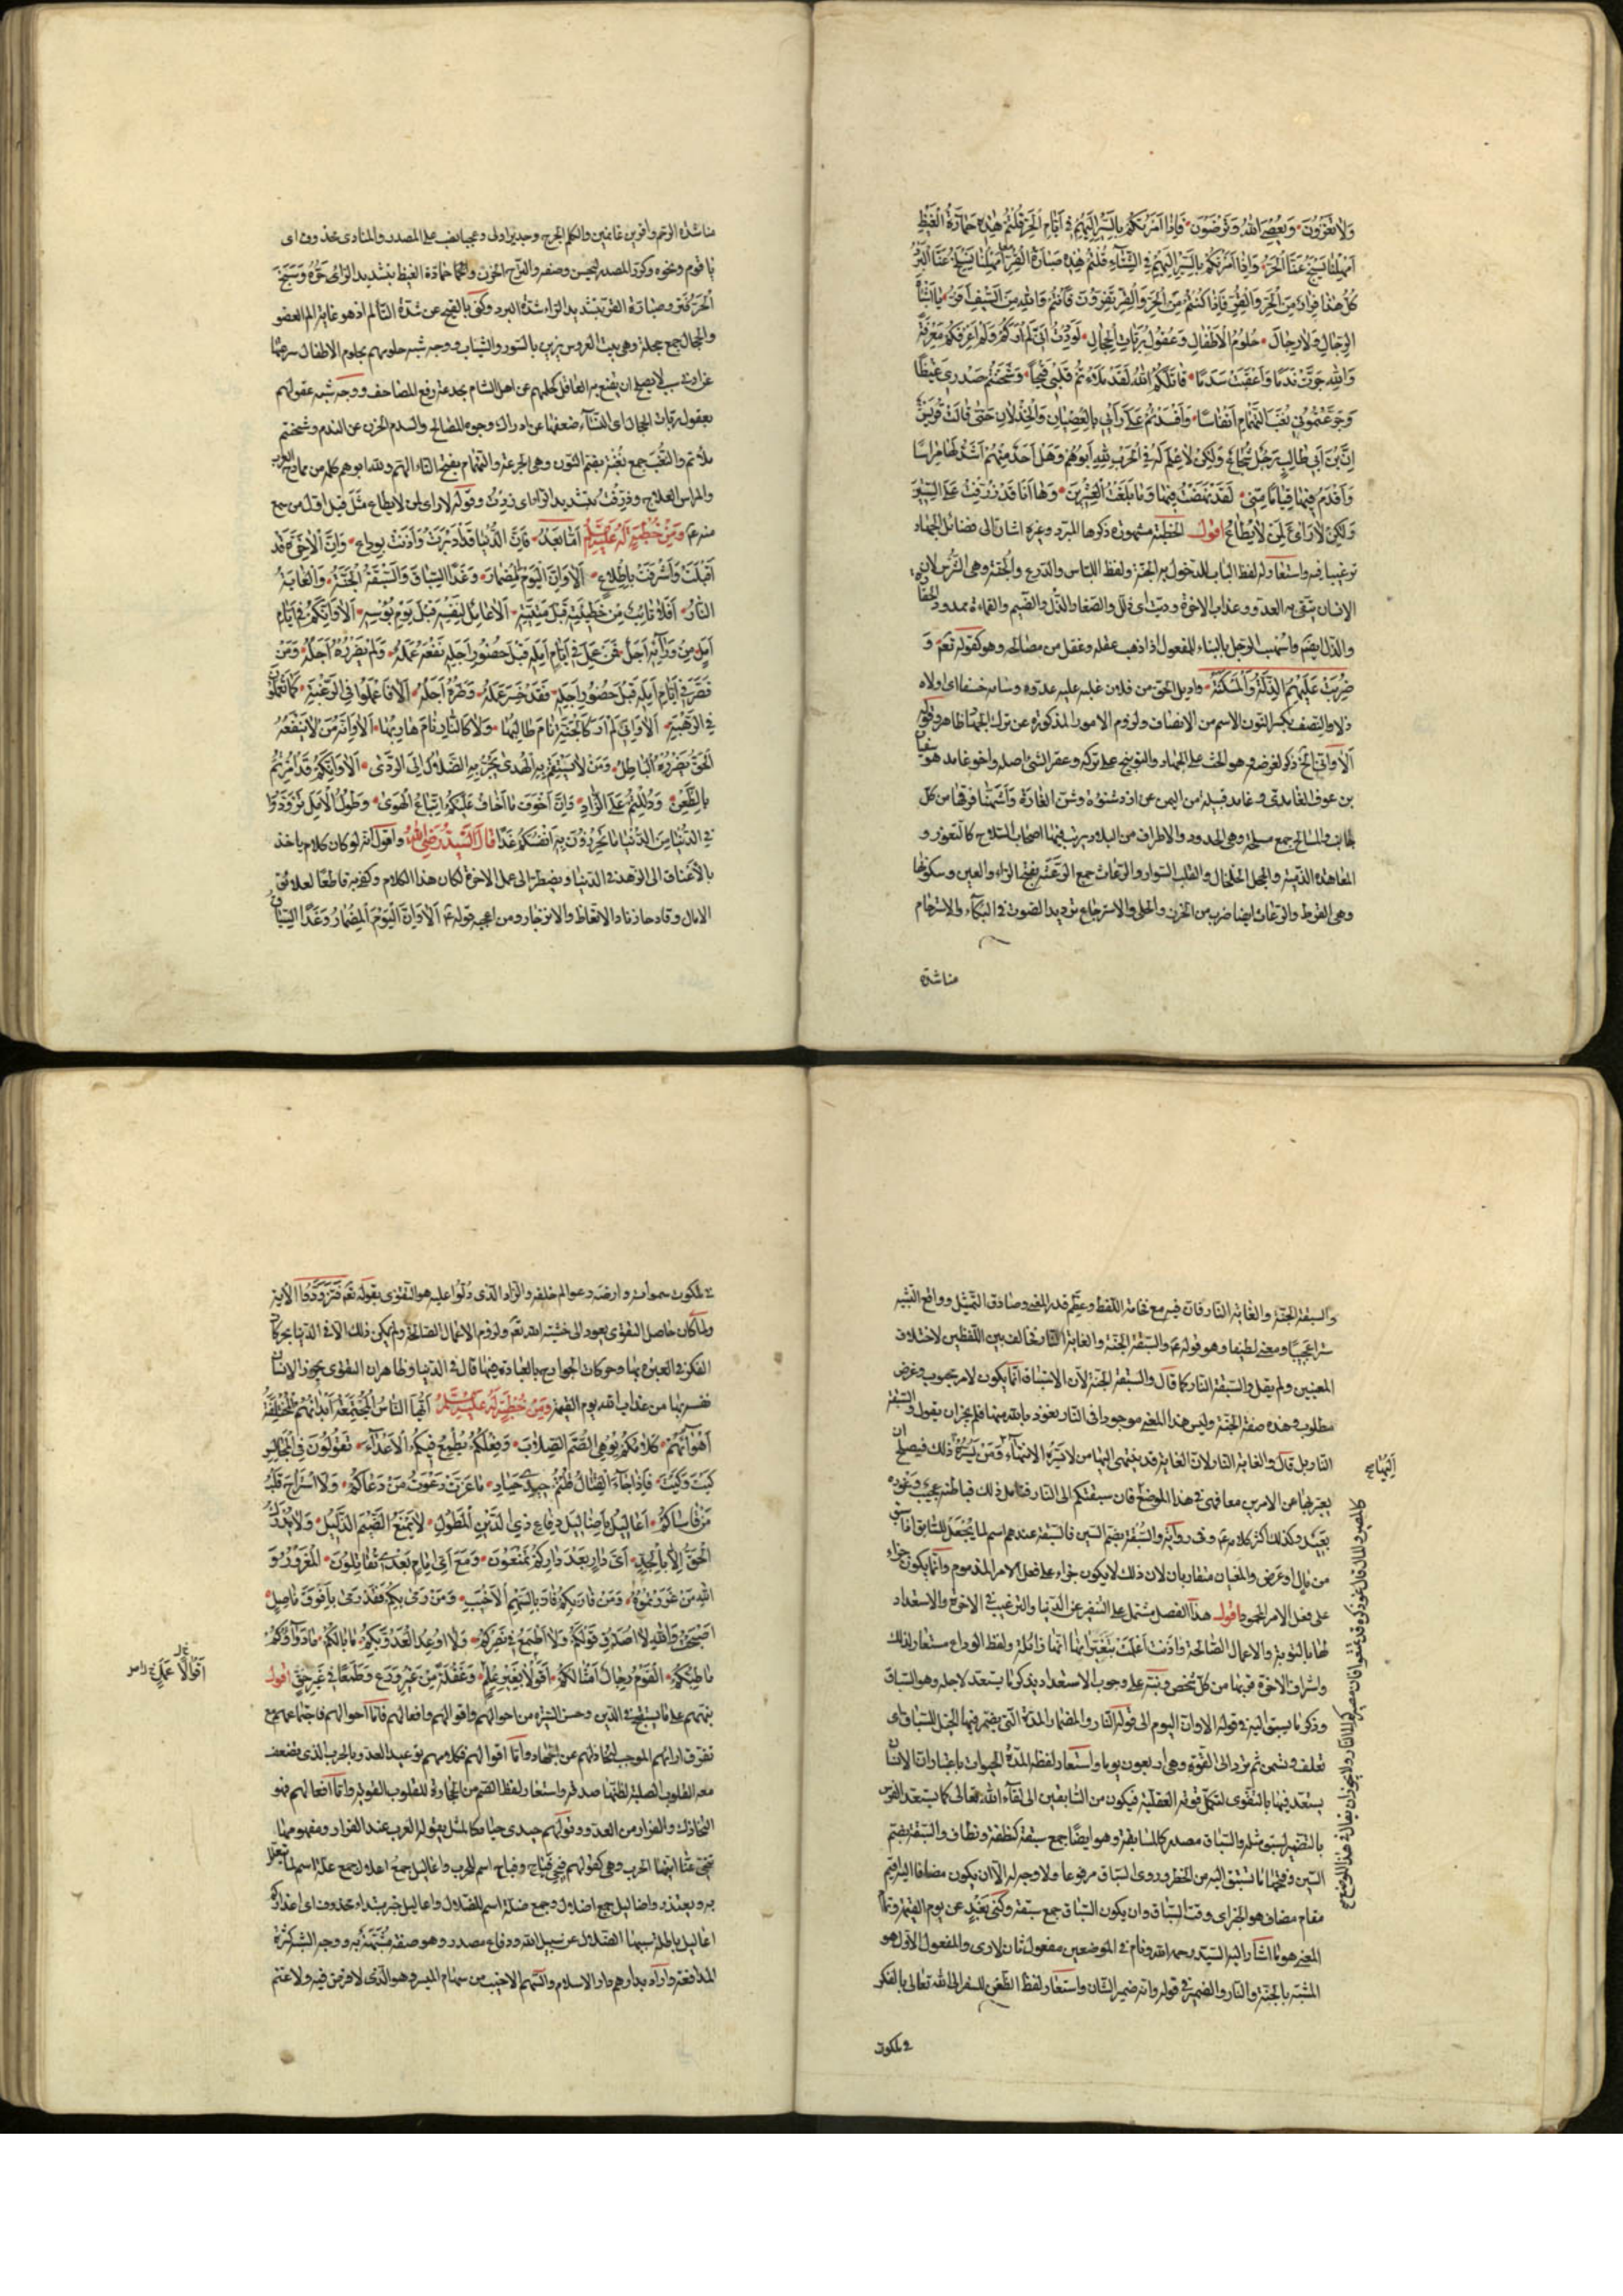 وَلَا تَغْزُونَ وَيُعْصَى اللهُ وَتَرْضَوْنَ فَإِذَا أَمَرْتُكُمْ بِالسَّيْرِ إِلَيْهِمْ فِي أَيَّامِ الْحَرِّ قُلْتُمْ هٰذِهِ حَمَارَّةُ الْقَيْظِ
أَمْهِلْنَا يُسَبَّخْ عَنَّا الْحَرُّ وَإِذَا أَمَرْتُكُمْ بِالسَّيْرِ إِلَيْهِمْ فِي الشِّتَاءِ قُلْتُمْ هٰذِهِ صَبَارَّةُ الْقُرِّ أَمْهِلْنَا يَنْسَلِخْ عَنَّا الْبَرْدُ
كُلُّ هٰذَا فِرَارًا مِنَ الْحَرِّ وَالْقُرِّ فَإِذَا كُنْتُمْ مِنَ الْحَرِّ وَالْقُرِّ تَفِرُّونَ فَأَنْتُمْ وَاللهِ مِنَ السَّيْفِ أَفَرُّ يَا أَشْبَاهَ
الرِّجَالِ وَلَا رِجَالَ حُلُومُ الْأَطْفَالِ وَعُقُولُ رَبَّاتِ الْحِجَالِ لَوَدِدْتُ أَنِّي لَمْ أَرَكُمْ وَلَمْ أَعْرِفْكُمْ مَعْرِفَةً
وَاللهِ جَرَّتْ نَدَمًا وَأَعْقَبَتْ سَدَمًا قَاتَلَكُمُ اللهُ لَقَدْ مَلَأْتُمْ قَلْبِي قَيْحًا وَشَحَنْتُمْ صَدْرِي غَيْظًا
وَجَرَّعْتُمُونِي نُغَبَ التَّهْمَامِ أَنْفَاسًا وَأَفْسَدْتُمْ عَلَيَّ رَأْيِي بِالْعِصْيَانِ وَالْخِذْلَانِ حَتَّى قَالَتْ قُرَيْشٌ
إِنَّ ابْنَ أَبِي طَالِبٍ رَجُلٌ شُجَاعٌ وَلٰكِنْ لَا عِلْمَ لَهُ فِي الْحَرْبِ لِلّٰهِ أَبُوهُمْ وَهَلْ أَحَدٌ مِنْهُمْ أَشَدُّ لَهَا مِرَاسًا
وَأَقْدَمُ فِيهَا مَقَامًا مِنِّي لَقَدْ نَهَضْتُ فِيهَا وَمَا بَلَغْتُ الْعِشْرِينَ وَهَا أَنَا قَدْ ذَرَّفْتُ عَلَى السِّتِّينَ
وَلٰكِنْ لَا رَأْيَ لِمَنْ لَا يُطَاعُ اقول الخطبة مشهورة ذكرها المبرد وغيره اشار الى فضائل الجهاد
ترغيبا فيه واستعار له لفظ الباب للدخول به الجنة ولفظ اللباس والدرع والجنة وهى الترس لان
الانسان يتقى به العدو وعذاب الاخرة وديث اى ذلل والصغار الذل والضيم والقماءة ممدود الحقارة
والذل ايضا واسهب الرجل بالبناء للمفعول اذا ذهب عقله وهو كقوله تعم و
ضُرِبَتْ عَلَيْهِمُ الذِّلَّةُ وَالْمَسْكَنَةُ واديل الحق من فلان غلبه عليه عدوه وسامه خسفا اى اولاه
ذلا والنصف بكسر النون الاسم من الانصاف ولزوم الامور المذكورة عن ترك الجهاد ظاهر وقوله
ألا وانى الخ ذكر لغرضه وهو الحث على الجهاد والتوبيخ على تركه وعقر الشئ اصله واخو غامد هو سفيان
بن عوف الغامدى وغامد قبيلة من اليمن من ازدشنوءة وشن الغارة واشنها فرقها من كل
جانب والمسالح جمع مسلحة وهى الحدود والاطراف من البلاد يرتب فيها اصحاب السلاح كالثغور و
المعاهدة الذمية والحجل الخلخال والقلب السوار والرعاث جمع الرعثة بفتح الراء والعين وسكونها
وهى القرط والرعاث ايضا ضرب من الخرز والحلى والاسترجاع ترديد الصوت فى البكاء والاسترحام
مناشدة
مناشدة الرحم وافرين غانمين والكلم الجرح
يا قوم ونحوه وكرر المصدر ليحسن والترح الحزن وحمارة القيظ بتشديد الراء حره وسبخ
الحر فتر وصبارة القر بتشديد الراء شدة البرد وكنى بالقيح عن شدة التألم اذ هو غاية الم العضو
والحجال جمع حجلة وهى بيت العروس يزين بالستور والثياب ووجه شبه حلومهم بحلوم الاطفال
عن اهل الشام بخدعة رفع المصاحف ووجه شبه عقولهم
بعقول ربات الحجال اى النساء ضعفها عن ادراك وجوه المصالح والسدم الحزن عن الندم وشحنتم
ملأتم والنغب جمع نغبة بضم النون وهى الجرعة والتهمام بفتح التاء الهم ولله ابوهم كلمة من ممادح العرب
والمراس العلاج وذرفت بتشديد الراء اى زدت وقوله لا رأى لمن لا يطاع مثل قيل اول من سمع
منه ع وَمِنْ خُطْبَةٍ لَهُ عَلَيْهِ السَّلَامُ أَمَّا بَعْدُ فَإِنَّ الدُّنْيَا قَدْ أَدْبَرَتْ وَآذَنَتْ بِوَدَاعٍ وَإِنَّ الْآخِرَةَ قَدْ
أَقْبَلَتْ وَأَشْرَفَتْ بِاطِّلَاعٍ أَلَا وَإِنَّ الْيَوْمَ الْمِضْمَارَ وَغَدًا السِّبَاقَ وَالسَّبَقَةُ الْجَنَّةُ وَالْغَايَةُ
النَّارُ أَفَلَا تَائِبٌ مِنْ خَطِيئَتِهِ قَبْلَ مَنِيَّتِهِ أَلَا عَامِلٌ لِنَفْسِهِ قَبْلَ يَوْمِ بُؤْسِهِ أَلَا وَإِنَّكُمْ فِي أَيَّامِ
أَمَلٍ مِنْ وَرَائِهِ أَجَلٌ فَمَنْ عَمِلَ فِي أَيَّامِ أَمَلِهِ قَبْلَ حُضُورِ أَجَلِهِ نَفَعَهُ عَمَلُهُ وَلَمْ يَضْرُرْهُ أَجَلُهُ وَمَنْ
قَصَّرَ فِي أَيَّامِ أَمَلِهِ قَبْلَ حُضُورِ أَجَلِهِ فَقَدْ خَسِرَ عَمَلَهُ وَضَرَّهُ أَجَلُهُ أَلَا فَاعْمَلُوا فِي الرَّغْبَةِ كَمَا تَعْمَلُونَ
فِي الرَّهْبَةِ أَلَا وَإِنِّي لَمْ أَرَ كَالْجَنَّةِ نَامَ طَالِبُهَا وَلَا كَالنَّارِ نَامَ هَارِبُهَا أَلَا وَإِنَّهُ مَنْ لَا يَنْفَعُهُ
الْحَقُّ يَضْرُرْهُ الْبَاطِلُ وَمَنْ لَا يَسْتَقِمْ بِهِ الْهُدَى يَجُرُّ بِهِ الضَّلَالُ إِلَى الرَّدَى أَلَا وَإِنَّكُمْ قَدْ أُمِرْتُمْ
بِالظَّعْنِ وَدُلِلْتُمْ عَلَى الزَّادِ وَإِنَّ أَخْوَفَ مَا أَخَافُ عَلَيْكُمُ اتِّبَاعُ الْهَوَى وَطُولُ الْأَمَلِ تَزَوَّدُوا
فِي الدُّنْيَا مِنَ الدُّنْيَا مَا تَحْرُزُونَ بِهِ أَنْفُسَكُمْ غَدًا قَالَ السَّيِّدُ رَضِيَ اللهُ واقول انه لو كان كلام ياخذ
بالاعناق الى الزهد فى الدنيا ويضطر الى عمل الاخرة لكان هذا الكلام وكفى به قاطعًا لعلائق
الامال وقادحا زناد الاتعاظ والازدجار ومن اعجبه قوله ع أَلَا وَإِنَّ الْيَوْمَ الْمِضْمَارَ وَغَدًا السِّبَاقَ
والسبقة الجنة والغاية النار فان فيه مع فخامة اللفظ وعظم قدر المعنى وصادق التمثيل وواقع التشبيه
سرا عجيبًا ومعنى لطيفا وهو قوله ع والسبقة الجنة والغاية النار فخالف بين اللفظين لاختلاف
المعنيين ولم يقل والسبقة النار كما قال والسبقة الجنة لان الاستباق انما يكون لامر محبوب وغرض
مطلوب وهذه صفة الجنة وليس هذا المعنى موجودا فى النار نعوذ بالله منها فلم يجز ان يقول والسبقة
النار بل قال والغاية النار لان الغاية قد ينتهى اليها من لا يسره الانتهاء ومن يسره ذلك فيصلح ان
يعبر بها عن الامرين معا فهى فى هذا الموضع فان سبقتكم الى النار فتامل ذلك فباطنه عجيب وغوره
بعيد وكذلك اكثر كلامه ع وفى رواية والسبقة بضم السين فالسبقة عندهم اسم لما يجعل للسابق اذا سبق
من مال او عرض والمعنيان متقاربان لان ذلك لا يكون جزاء على فعل الامر المذموم وانما يكون جزاء
على فعل الامر المحمود اقول هذا الفصل مشتمل على التنفير عن الدنيا والترغيب فى الاخرة والاستعداد
لها بالتوبة والاعمال الصالحة واذنت اعلمت بتغيراتها انها زائلة ولفظ الوداع مستعار لذلك
واشراف الاخرة قربها من كل شخص ونبه على وجوب الاستعداد بذكر ما يستعد لاجله وهو السباق
وذكر ما يستبق اليه فى قوله الا وان اليوم الى قوله النار والمضمار المدة التى يضمر فيها الخيل للسباق اى
تعلف وتسمن ثم ترد الى القوت وهى اربعون يوما واستعار لفظه لمدة الحيوة باعتبار ان الانسان
يستعد فيها بالتقوى لتكمل قوته العقلية فيكون من السابقين الى لقاء الله تعالى كما يستعد الفرس
بالتضمير لسبق مثله والسباق مصدر كالمسابقة وهو ايضًا جمع سبقة كنطفة ونطاف والسبقة بضم
السين وفتحها ما يستبق اليه من الخطر وروى السباق مرفوعا ولا وجه له الا ان يكون مضافا اليه اقيم
مقام مضاف هو الخبر اى وقت السباق وان يكون السباق جمع سبقة وكنى بغد عن يوم القيمة
المعنى هو ما اشار اليه السيد رحمه الله ونام فى الموضعين مفعول ثان لارى والمفعول الاول هو
المشبه بالجنة والنار والضمير فى قوله وانه ضمير الشان واستعار لفظ الظعن للسفر الى الله تعالى بالفكر
فى ملكوت
فى ملكوت سمواته وارضه وعوالم خلقه والزاد الذى دلوا عليه هو التقوى بقوله تعم فَتَزَوَّدُوا الاية
ولما كان حاصل التقوى يعود الى خشية الله تعم ولزوم الاعمال الصالحة ولم يمكن ذلك الا فى الدنيا بحركات
الفكر فى العبرة بها وحركات الجوارح بالعبادة فيها قال فى الدنيا وظاهر ان التقوى يحرز الانسان
نفسه بها من عذاب الله يوم القيمة وَمِنْ خُطْبَةٍ لَهُ عَلَيْهِ السَّلَامُ أَيُّهَا النَّاسُ الْمُجْتَمِعَةُ أَبْدَانُهُمْ الْمُخْتَلِفَةُ
أَهْوَاؤُهُمْ كَلَامُكُمْ يُوهِي الصُّمَّ الصِّلَابَ وَفِعْلُكُمْ يُطْمِعُ فِيكُمُ الْأَعْدَاءَ تَقُولُونَ فِي الْمَجَالِسِ
كَيْتَ وَكَيْتَ فَإِذَا جَاءَ الْقِتَالُ قُلْتُمْ حِيدِي حَيَادِ مَا عَزَّتْ دَعْوَةُ مَنْ دَعَاكُمْ وَلَا اسْتَرَاحَ قَلْبُ
مَنْ قَاسَاكُمْ أَعَالِيلُ بِأَضَالِيلَ دِفَاعَ ذِي الدَّيْنِ الْمَطُولِ لَا يَمْنَعُ الضَّيْمَ الذَّلِيلُ وَلَا يُدْرَكُ
الْحَقُّ إِلَّا بِالْجِدِّ أَيَّ دَارٍ بَعْدَ دَارِكُمْ تَمْنَعُونَ وَمَعَ أَيِّ إِمَامٍ بَعْدِي تُقَاتِلُونَ الْمَغْرُورُ وَ
اللهِ مَنْ غَرَرْتُمُوهُ وَمَنْ فَازَ بِكُمْ فَازَ بِالسَّهْمِ الْأَخْيَبِ وَمَنْ رَمَى بِكُمْ فَقَدْ رَمَى بِأَفْوَقَ نَاصِلٍ
أَصْبَحْتُ وَاللهِ لَا أُصَدِّقُ قَوْلَكُمْ وَلَا أَطْمَعُ فِي نَصْرِكُمْ وَلَا أُوعِدُ الْعَدُوَّ بِكُمْ مَا بَالُكُمْ مَا دَوَاؤُكُمْ
مَا طِبُّكُمْ الْقَوْمُ رِجَالٌ أَمْثَالُكُمْ أَقَوْلًا بِغَيْرِ عِلْمٍ وَغَفْلَةً مِنْ غَيْرِ وَرَعٍ وَطَمَعًا فِي غَيْرِ حَقٍّ اقول
نبههم على ما يستقبح فى الدين وحسن السيرة من احوالهم واقوالهم وافعالهم فاما احوالهم فاجتماعهم مع
تفرق ارائهم الموجب لتخاذلهم عن الجهاد واما اقوالهم فكلامهم بوعيد العدو بالحرب الذى يضعف
معه القلوب الصلبة لظنها صدقه واستعار لفظ الصم من الحجارة للقلوب القوية واما افعالهم فهو
التخاذل والفرار من العدو وقولهم حيدى حياد كالمثل يقوله العرب عند الفرار ومفهومها
تنحى عنا ايتها الحرب وهى كقولهم فيحى فياح وفياح اسم للحرب واعاليل جمع اعلال جمع علة اسم لما يتعلل
به ويعتذر واضاليل جمع اضلال وجمع ضلة اسم للضلال واعاليل خبر مبتداء محذوف اى اعذاركم
اعاليل باطلة سببها الضلال عن سبيل الله ودفاع مصدر وهو صفة مشبهة به ووجه الشبه كثرة
المدافعة واراد بدارهم دار الاسلام والسهم الاخيب من سهام الميسر وهو الذى لا فوز فيه ولا غنم